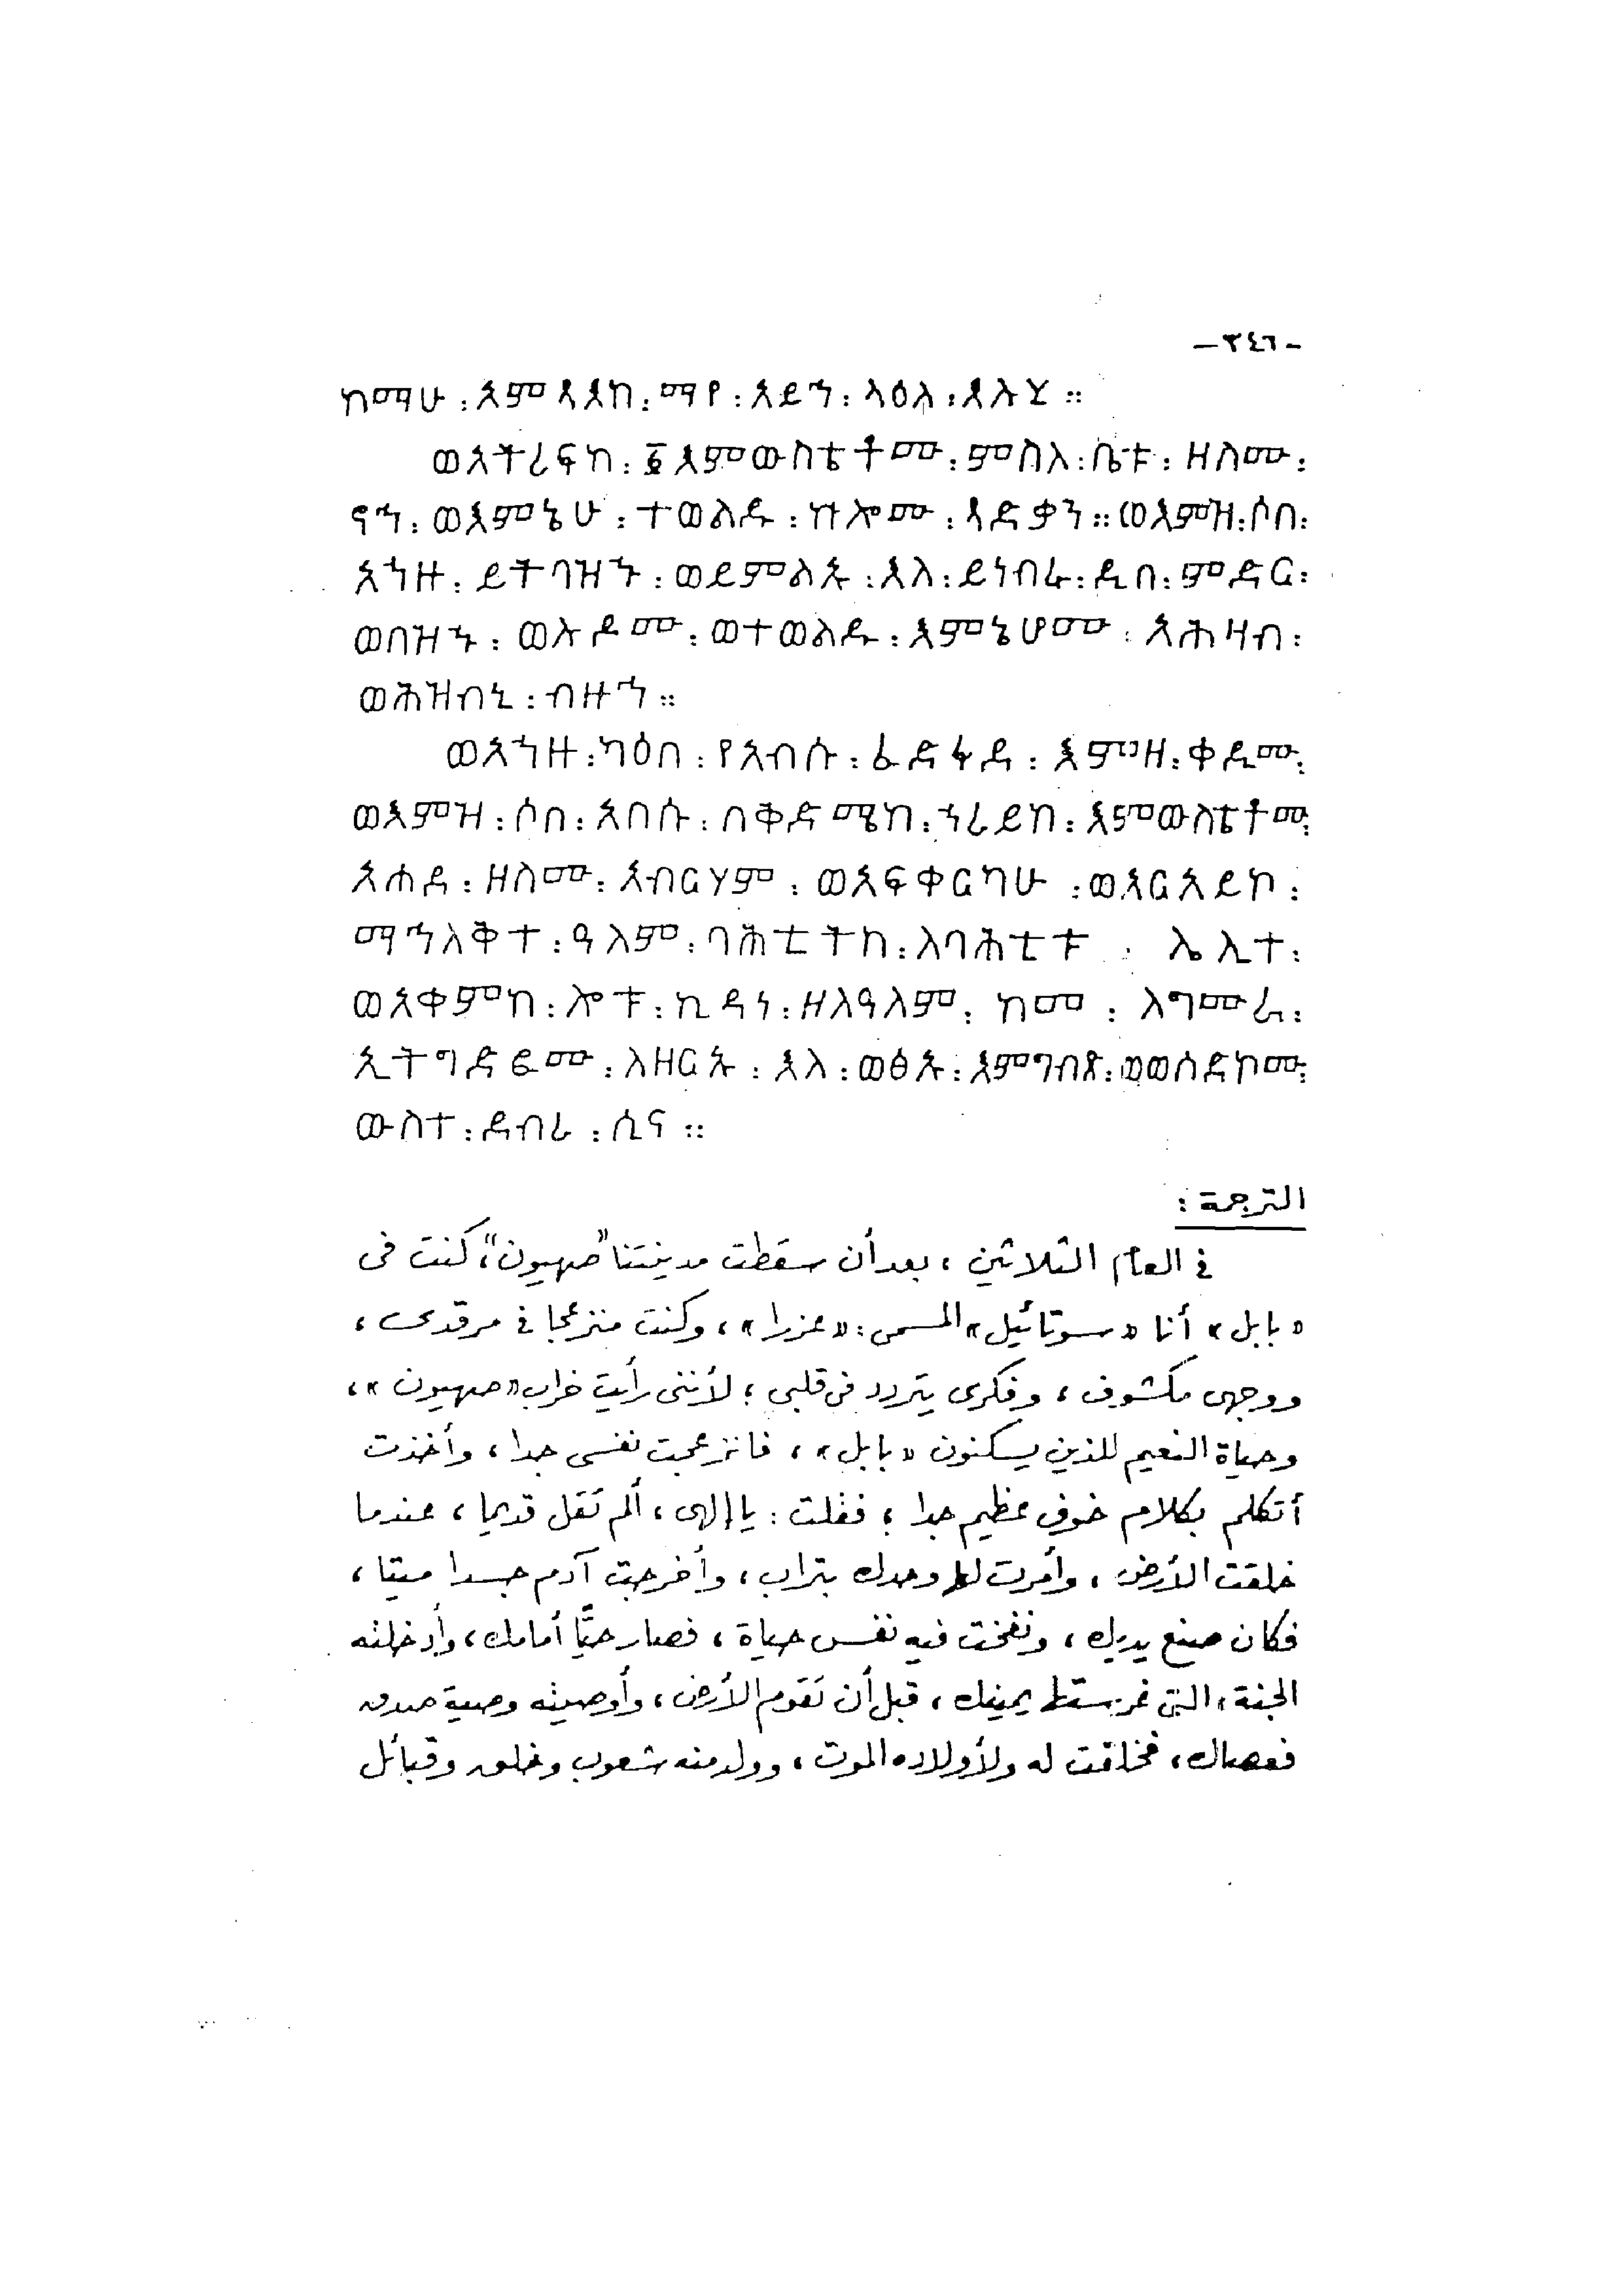 - ٣٤٦ -
ከማሁ ፡ አምጻእከ ፡ ማየ ፡ አይኅ ፡ ላዕለ ፡ እሉሂ ።
ወአትረፍከ ፡ ፩እምውስቴቶሙ ፡ ምስለ ፡ ቤቱ ፡ ዘስሙ ፡
ኖኅ ፡ ወእምኔሁ ፡ ተወልዱ ፡ ኵሎሙ ፡ ጻድቃን ። ወእምዝ ፡ ሶበ ፡
አኀዙ ፡ ይትባዝኁ ፡ ወይምልኡ ፡ እለ ፡ ይነብሩ ፡ ዲበ ፡ ምድር ፡
ወበዝኁ ፡ ውሉዶሙ ፡ ወተወልዱ ፡ እምኔሆሙ ፡ አሕዛብ ፡
ወሕዝብኒ ፡ ብዙኅ ።
ወአኀዙ ፡ ካዕበ ፡ የአብሱ ፡ ፈድፋደ ፡ እምዘ ፡ ቀዲሙ ፡
ወእምዝ ፡ ሶበ ፡ አበሱ ፡ በቅድሜከ ፡ ኀረይከ ፡ እምውስቴቶሙ ፡
አሐደ ፡ ዘስሙ ፡ አብርሃም ፡ ወአፍቀርካሁ ፡ ወአርአይኮ ፡
ማኅለቅተ ፡ ዓለም ፡ ባሕቲትከ ፡ ለባሕቲቱ ፡ ሌሊተ ፡
ወአቀምከ ፡ ሎቱ ፡ ኪዳነ ፡ ዘለዓለም ፡ ከመ ፡ ለግሙራ ፡
ኢትግድፎሙ ፡ ለዘርኡ ፡ እለ ፡ ወፅኡ ፡ እምግብጽ ፡ ወወሰድኮሙ ፡
ውስተ ፡ ደብረ ፡ ሲና ።
الترجمة :
في العام الثلاثين ، بعد أن سقطت مدينتنا "صهيون" ، كنت فى
« بابل » أنا « سوتائيل » المسمى : « عزرا » ، وكنت منزعجا في مرقدى ،
ووجهى مكشوف ، وفكرى يتردد فى قلبى ؛ لأننى رأيت خراب « صهيون » ،
وحياة النعيم للذين يسكنون « بابل » ، فانزعجت نفسى جدا ، وأخذت
أتكلم بكلام خوف عظيم جدا ؛ فقلت : يا إلهى ، ألم تقل قديما ، عندما
خلقت الأرض ، وأمرت لها وحدك بتراب ، وأخرجت آدم جسدا ميتا ،
فكان صنع يديك ، ونفخت فيه نفس حياة ، فصار حيًّا أمامك ، وأدخلته
الجنة ، التى غرستها يمينك ، قبل أن تقوم الأرض ، وأوصيته وصية صدق
فعصاك ، فخلقت له ولأولاده الموت ، وولد منه شعوب وخلق وقبائل